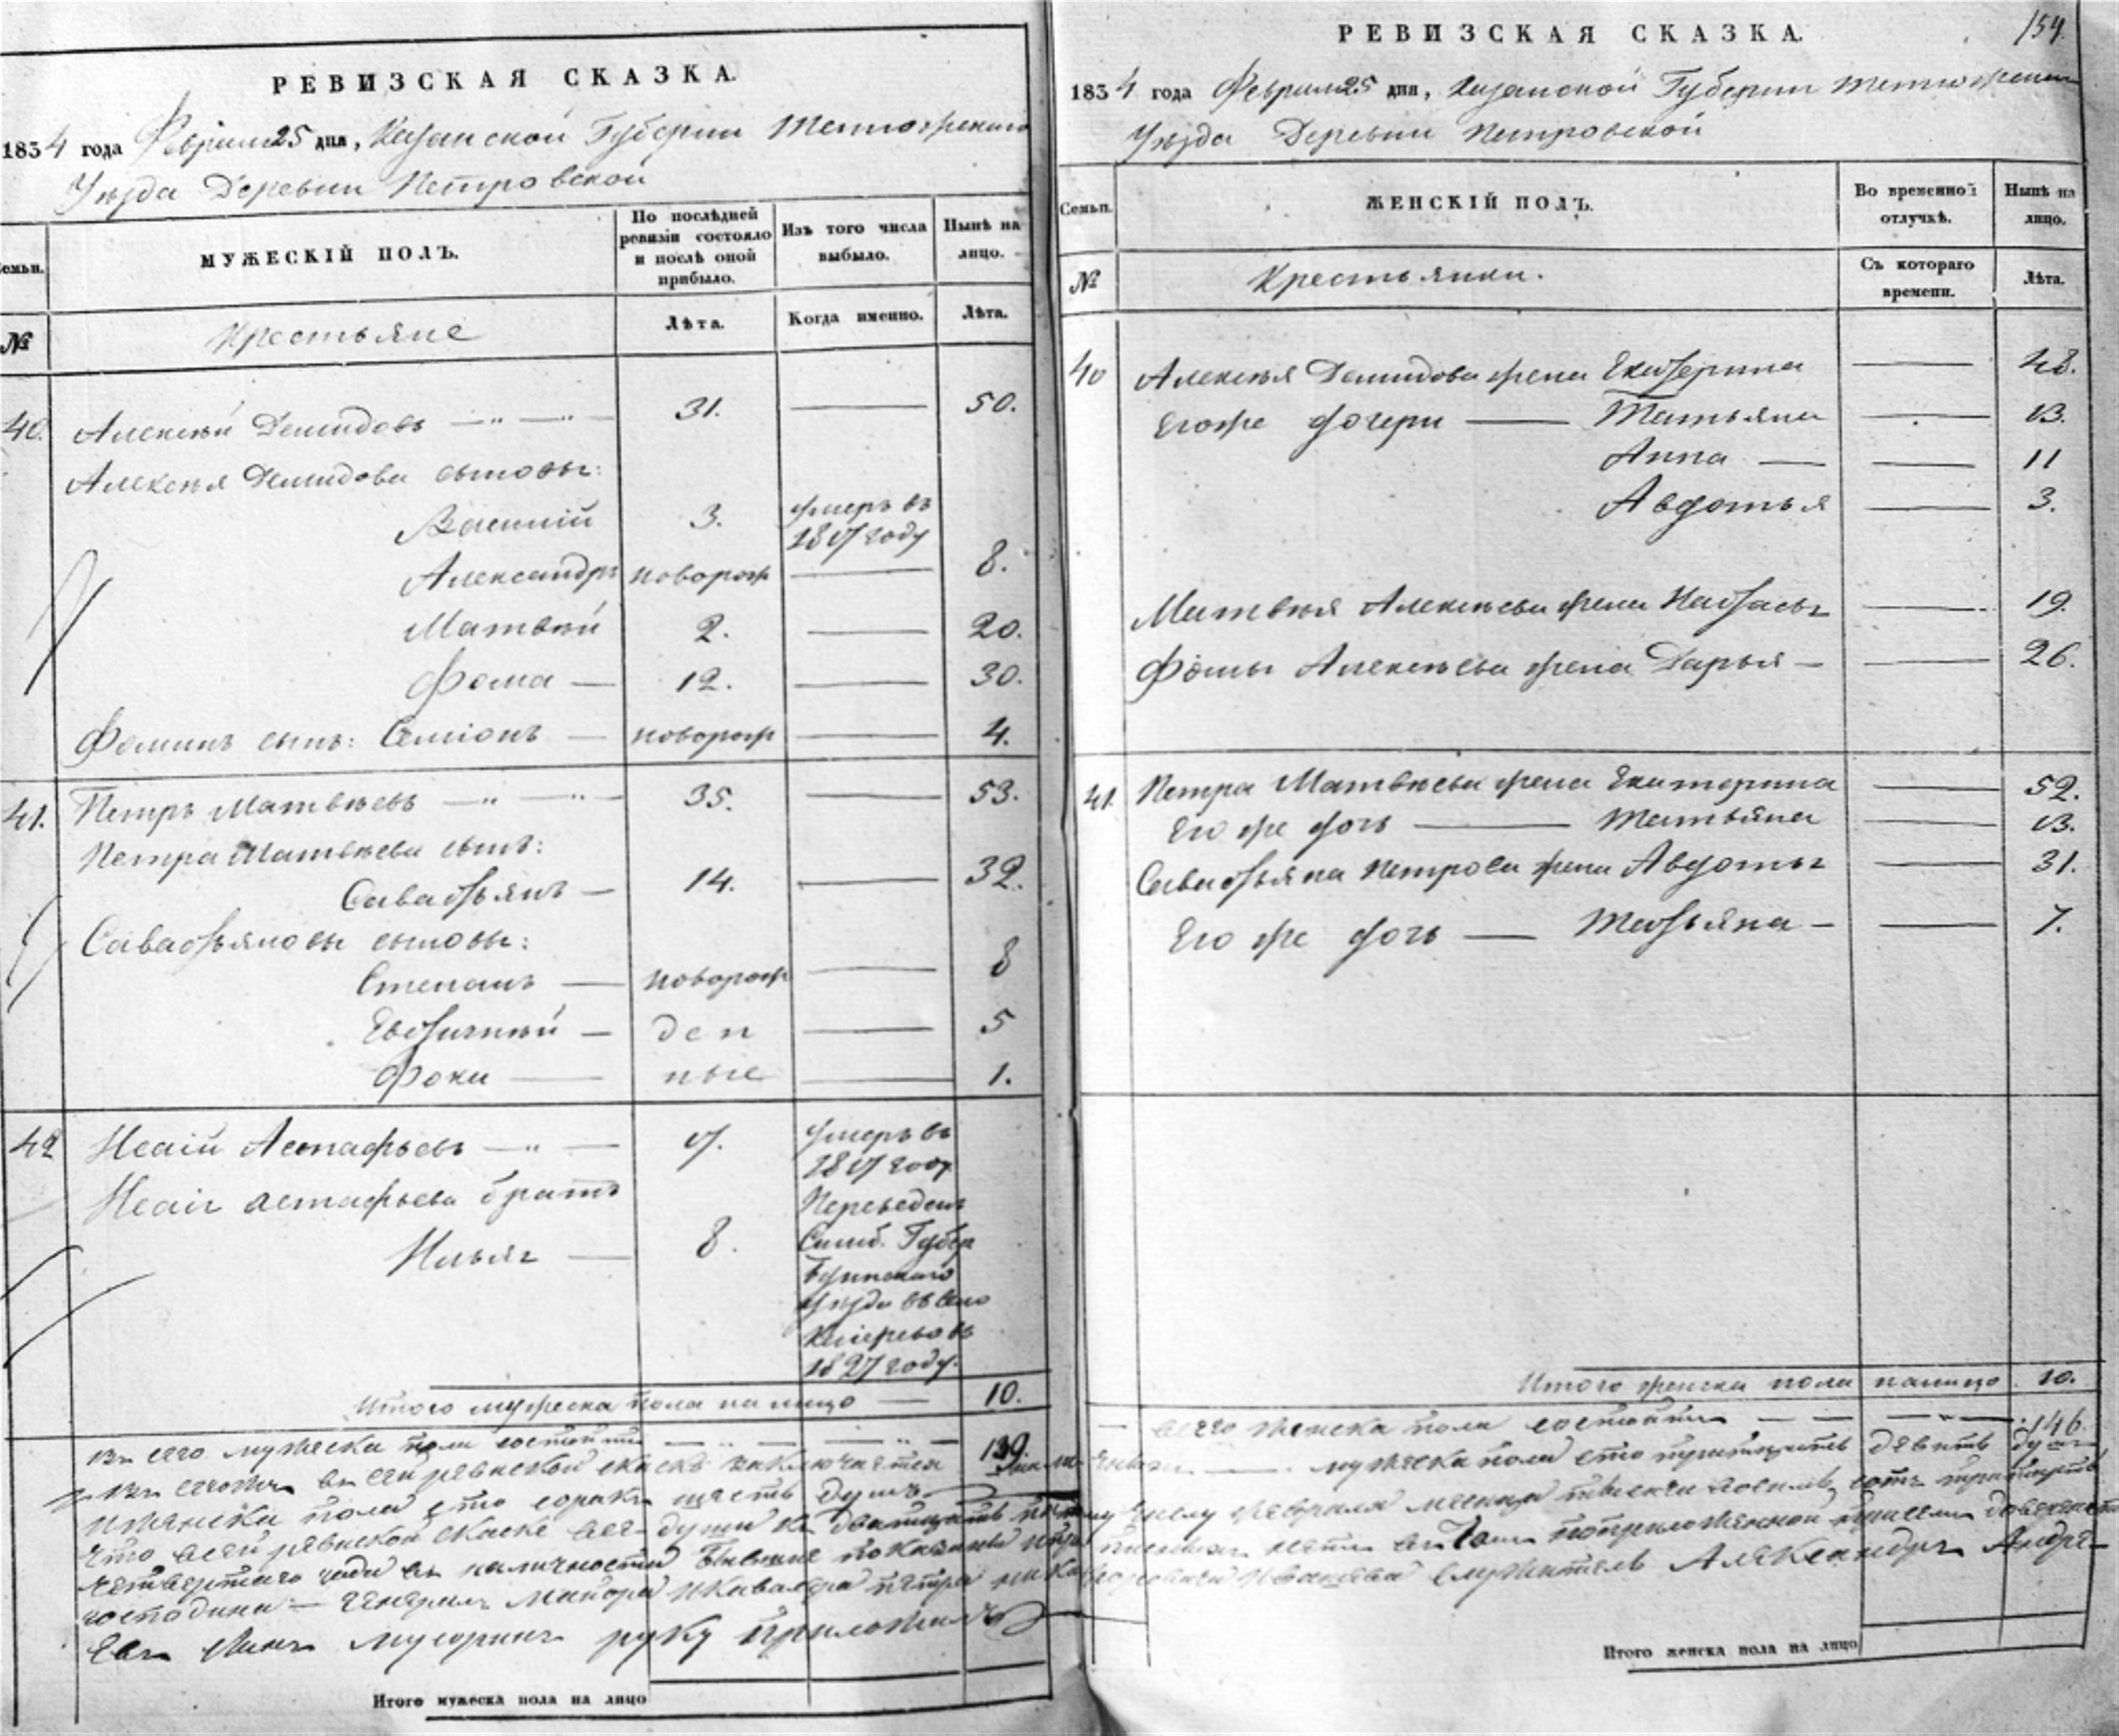 РЕВИЗСКАЯ СКАЗКА.
1834 года Февраля 25 дня, Казанской Губернии Тетюшскаго
Уѣзда Деревни Петровской
Семьи.
МУЖЕСКІЙ ПОЛЪ.
По послѣдней ревизіи состояло и послѣ оной прибыло.
Изъ того числа выбыло.
Нынѣ на лицо.
№
Крестьяне
Лѣта.
Когда именно.
Лѣта.
40. Алексѣй Демидовъ — „ — 31. — 50.
Алексѣя Демидова сыновья:
Василій 3. умеръ въ 1817 году
Александръ новорож — 8.
Матвѣй 2. — 20.
Фома — 12. — 30.
Фоминъ сынъ: Семіонъ — новорож — 4.
41. Петръ Матвѣевъ — „ — „ — 35. — 53.
Петра Матвѣева сынъ:
Савастьянъ — 14. — 32.
Савастьяновы сыновья:
Степанъ — новорож — 8
Евстигнѣй — ден — 5
Фока — ные — 1.
42 Исаій Астафьевъ — „ — 17. умеръ въ 1817 году
Исаія Астафьева братъ
Илья — 8. Переведенъ
Симб. Губер
Буинскаго
уѣзда въ село
въ
1827 году.
Итого мужеска пола на лицо — 10.
Всего мужеска пола состоитъ — „ — „ — 139.
въ сей ревиской скаскѣ заключается
и женска пола сто сорокъ шесть душъ
что всей ревиской скаске все души къ дватцать
четвертаго года въ наличности бывшие показаны
господина — генералъ маиора и кавалера Петра
евъ сынъ руку приложилъ
Итого мужеска пола на лицо
РЕВИЗСКАЯ СКАЗКА.
154.
1834 года Февраля 25 дня, Казанской Губернии Тетюшскаго
Уѣзда Деревни Петровской
Семьи.
ЖЕНСКІЙ ПОЛЪ.
Во временной отлучкѣ.
Нынѣ на лицо.
№
Крестьянки.
Съ котораго времени.
Лѣта.
40 Алексѣя Демидова жена Екатерина — 48.
Егоже дочери — Татьяна — 13.
Анна — — 11
Авдотья — 3.
Матвѣя Алексѣева жена Настасья — 19.
Фомы Алексѣева жена Дарья — — 26.
41. Петра Матвѣева жена Екатерина — 52.
Его же дочь — Татьяна — 13.
Савастьяна Петрова жена Авдотья — 31.
Его же дочь — Татьяна — — 7.
Итого женска пола налицо 10.
— Всего женска пола состоитъ — — — „ — 146.
— мужеска пола сто тритцать девять душъ
числу февраля месяца тысяча восемь сотъ тритцать
нетъ въ томъ по приложенной
служитель Александръ Андре-
Итого женска пола на лицо